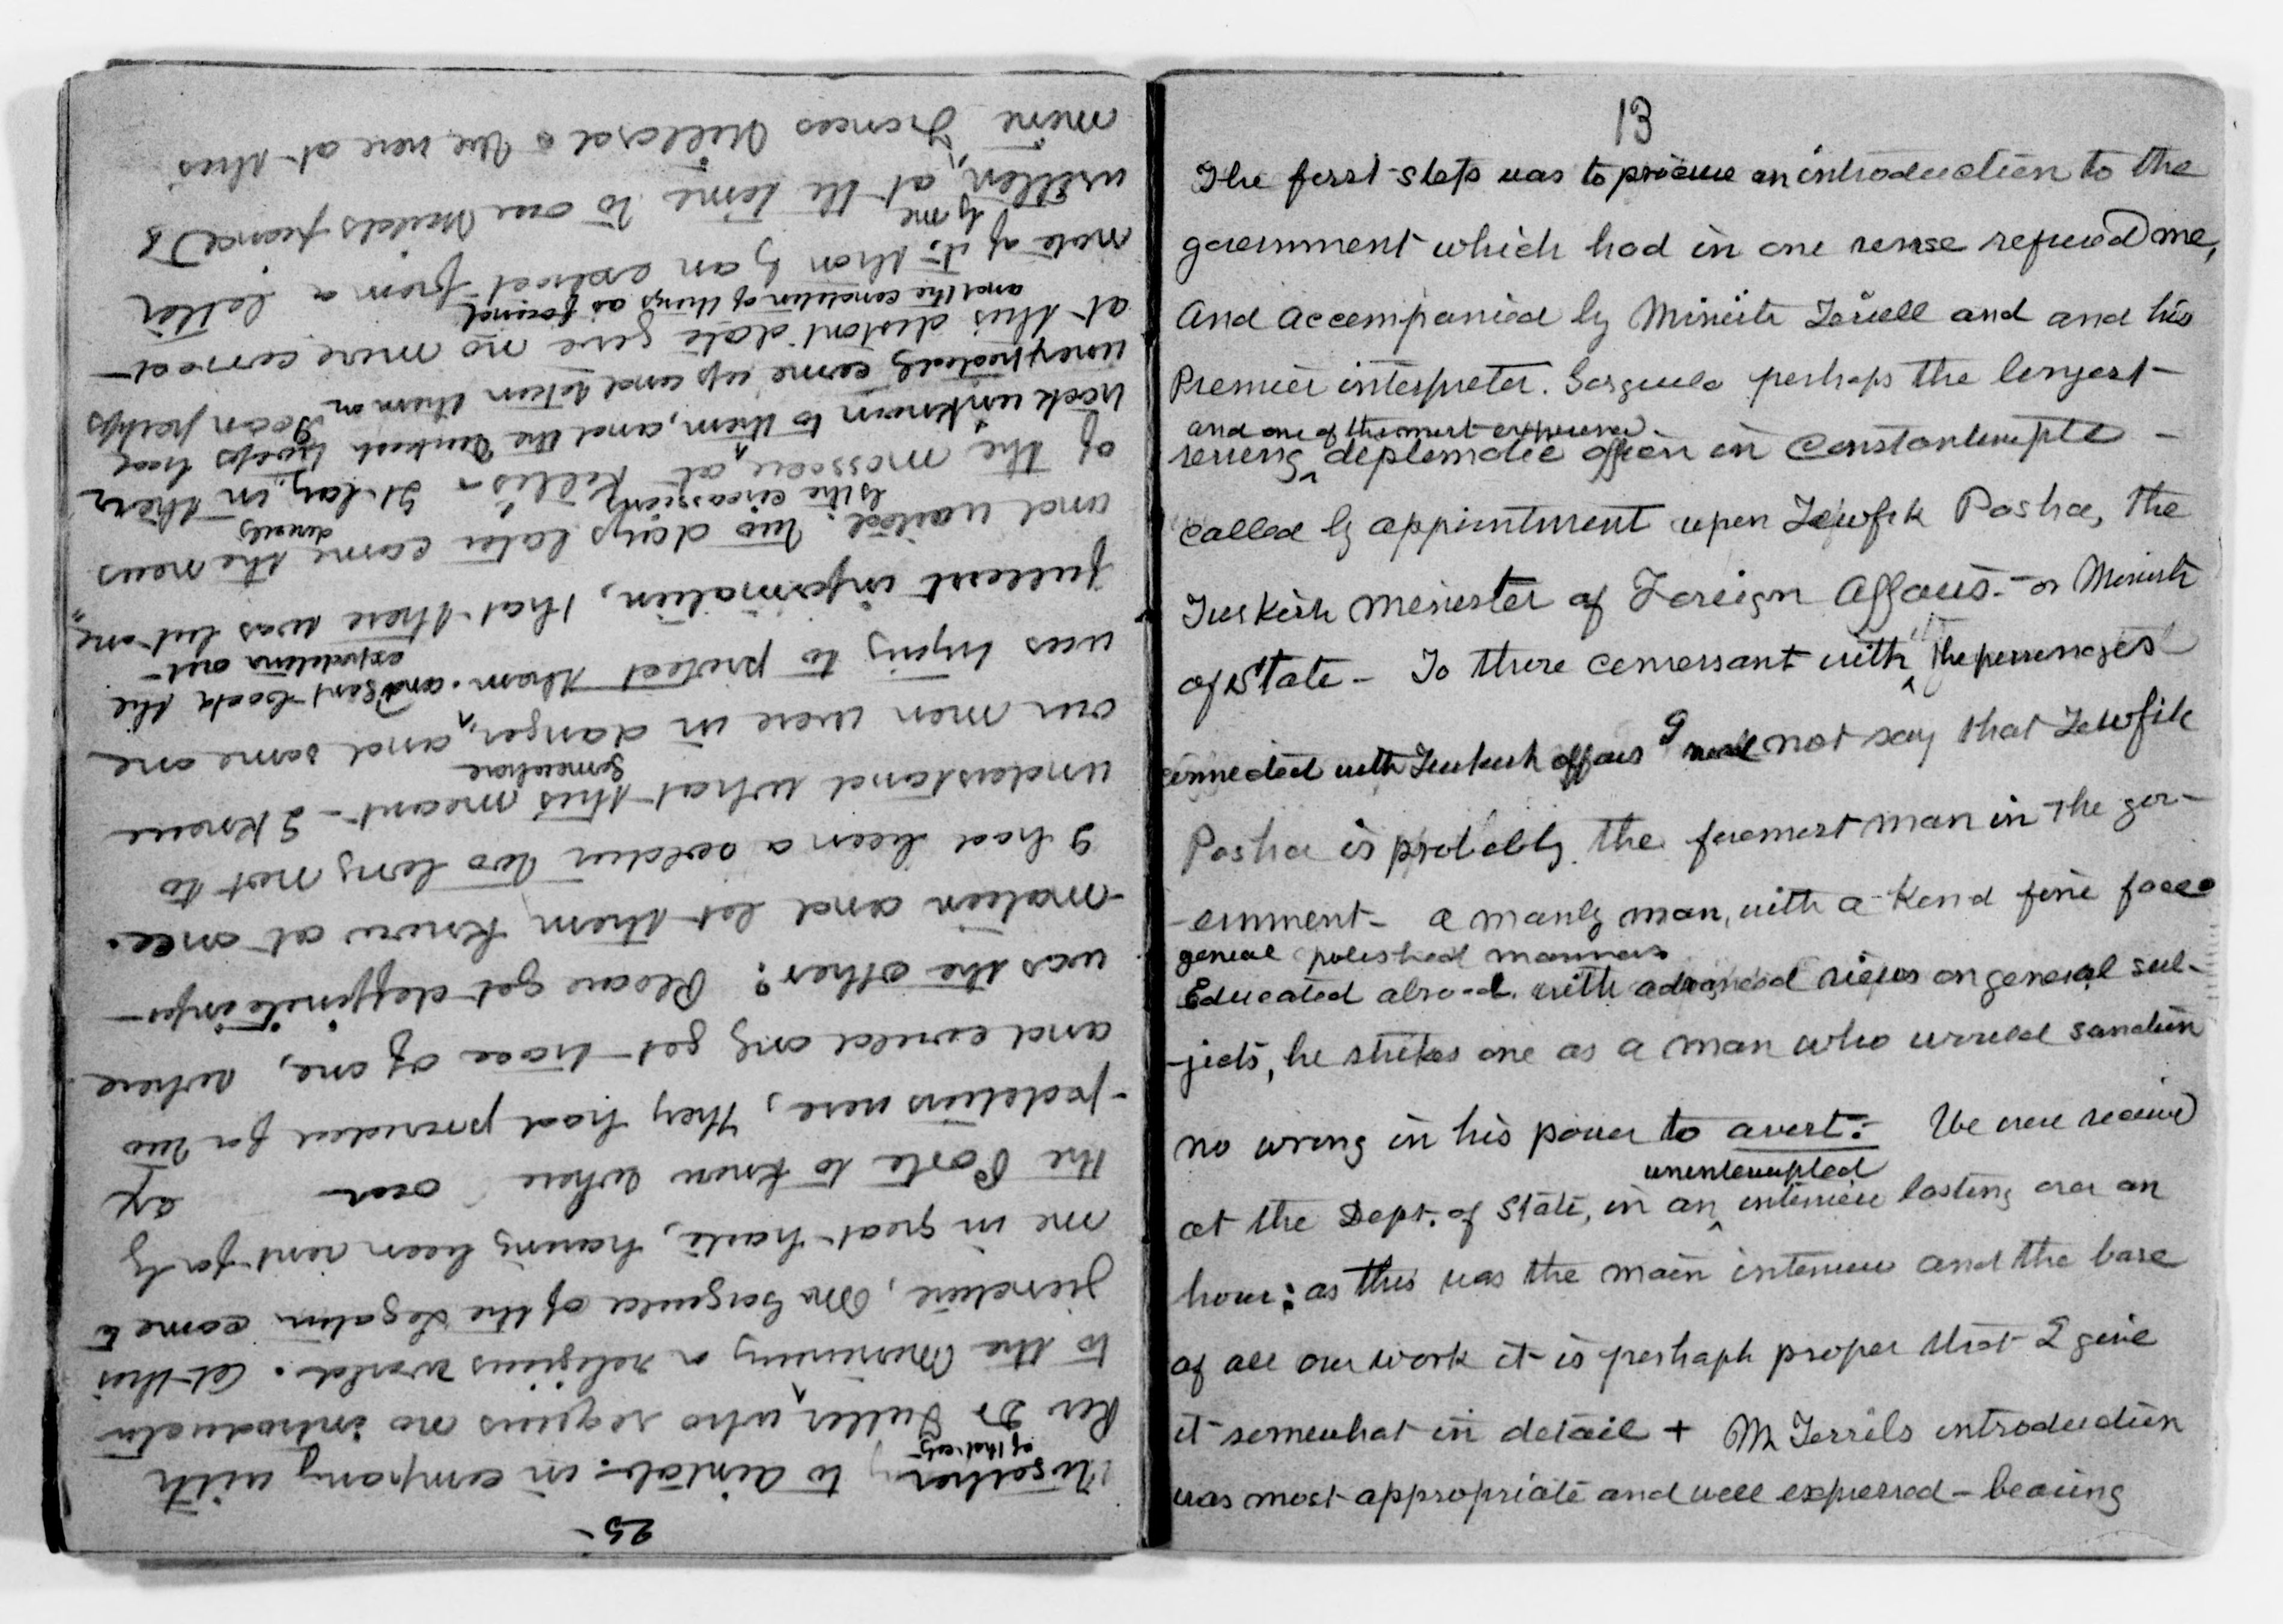 25-
together to Aintab: in company with
of that city
Rev Dr Fuller, who requires no introduction
to the Missionary or religious world. At this
juncture, Mr Gargiulo of the Legation came to
me in great haste, having been sent for by
the Porte to know where our ex
-peditions were, they had provided for two
and could only get trace of one, where
was the other? Please get deffinite infor-
-mation and let them know at once.
I had been a soldier too long not to
understand what this meant - I knew
somewhere
our men were in danger, and some one
was trying to protect them. and sent back the
expedition out
fullest information, that there was but one,
and waited. Two days later came the news
by the circassians
of the massacre, at Killis - It lay in their
track unknown to them, and the Turkish troops had
unexpectedly come up and taken them on I can perhaps
at this distant date give no more correct
and the condition of things as found
note of it, than by an extract from a letter
by me
written, at the time to our Worlds friend &
mine Frances Willard. We were at this
13
The first steps was to procure an introduction to the
government which had in one sense refused me,
And accompanied by Minister Terrell and and his
Premier interpreter. Gargiulo perhaps the longest
and one of the most experienced
serving diplomatic officers in Constantinople -
called by appointment upon Tewfik Pasha, the
Turkish Minister of Foreign Affairs. - or Minister
of State - To those conversant with the personages
connected with Turkish affairs I need not say that Tewfik
Pasha is probably the foremost man in the gov-
-ernment - a manly man, with a kind fine face.
genial polished manners
Educated abroad. with advanced views on general sub-
-jects, he strikes one as a man who would sanction
no wrong in his power to avert. - We were received
at the Dept. of State, in an
uninterrupted
interview lasting over an
hour: as this was the main interview and the base
of all our work it is perhaph proper that I give
it somewhat in detail + Mr Terrils introduction
was most appropriate and well expressed - bearing